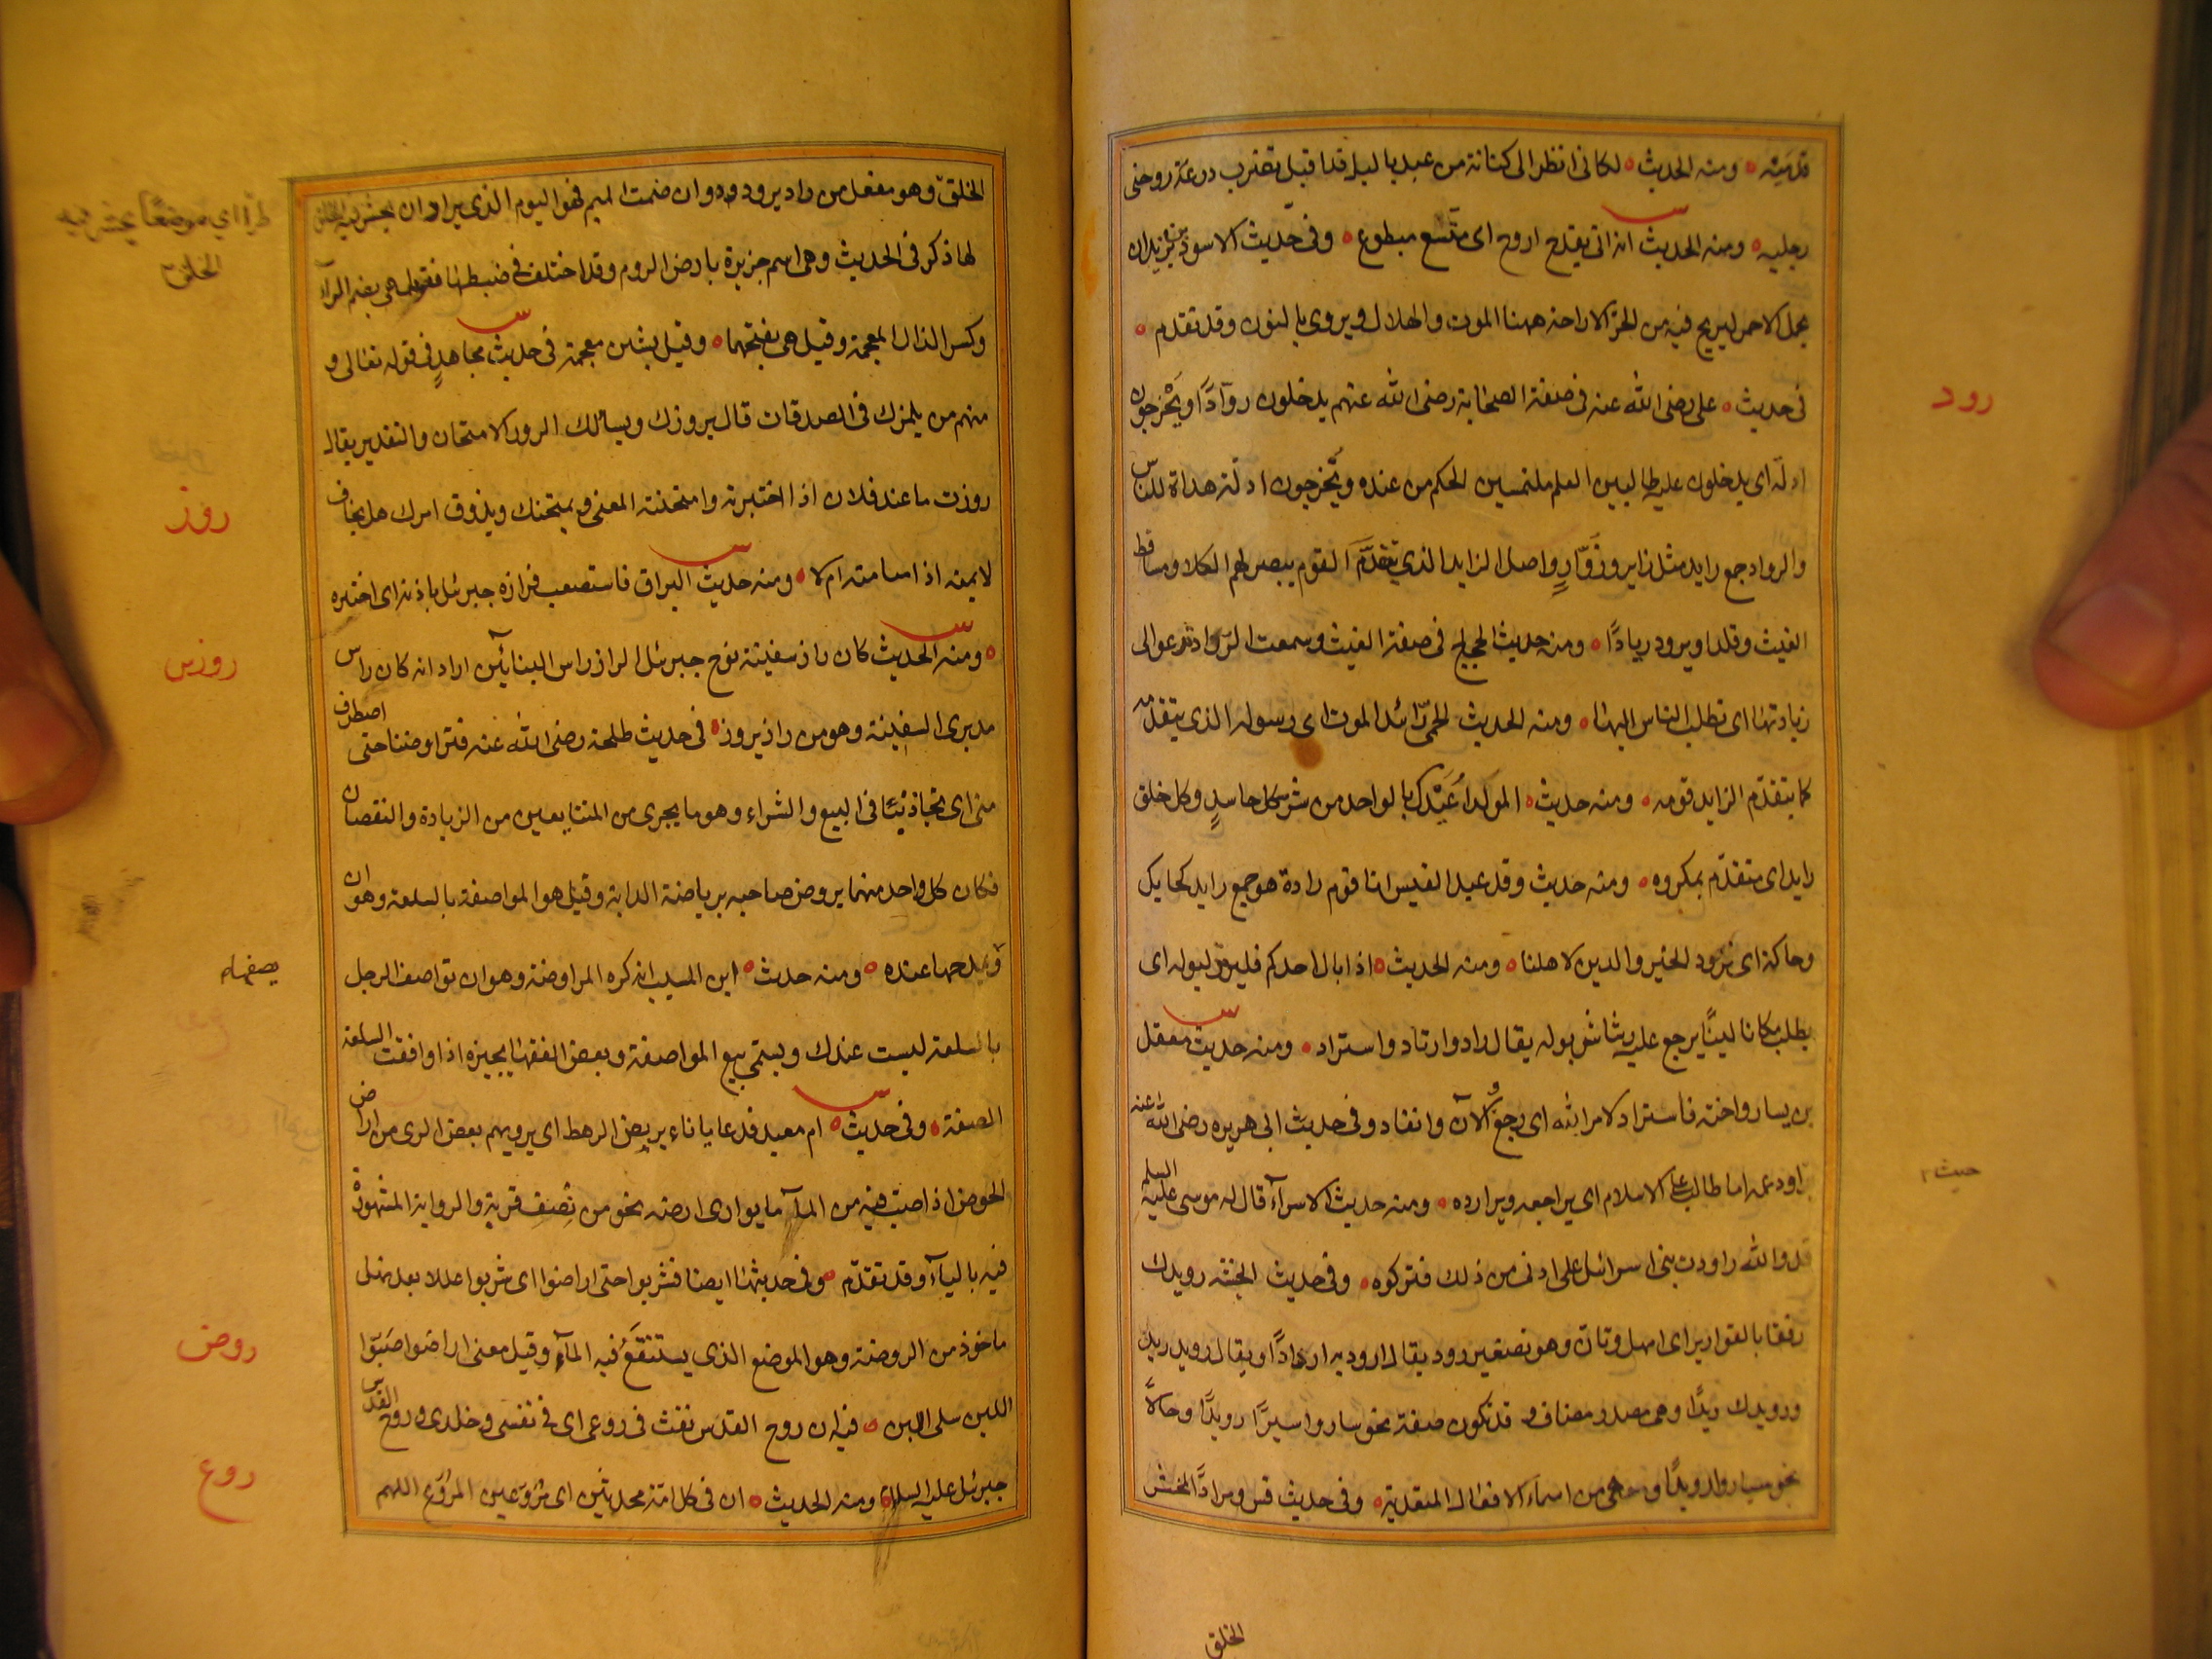 قدميه ومنه الحديث لكاني انظر الى كنانة بن عبد ياليل قد اقبل تضرب درعه روحتي
رجليه ومنه الحديث انه اتي بقدح اروح اى متسع مبطوح وفي حديث الاسود بن يزيد ان
الجمل الاحمر ليريح فيه من الحر الاراحة ههنا الموت والهلاك ويروى بالنون وقد تقدم
رود
في حديث على رضى الله عنه في صفة الصحابة رضى الله عنهم يدخلون روادا ويخرجون
ادلة اى يدخلون عليه طالبين العلم ملتمسين الحكم من عنده ويخرجون ادلة هداة للناس
والرواد جمع رايد مثل زاير وزوار واصل الرايد الذى يتقدم القوم يبصر لهم الكلا ومساقط
الغيث وقد راد يرود ريادا ومنه حديث الحجاج في صفة الغيث وسمعت الرواد تدعو الى
ريادتها اى تطلب الناس اليها ومنه الحديث الحمى رائد الموت اى رسوله الذى يتقدمه
كما يتقدم الرايد قومه ومنه حديث المولد اعيذك بالواحد من شر كل حاسد وكل خلق
رايد اى متقدم بمكروه ومنه حديث وفد عبد القيس انا قوم رادة هو جمع رايد كحايك
وحاكة اى نرود الخير والدين لاهلنا ومنه الحديث اذا بال احدكم فليرتد لبوله اى
يطلب مكانا لينا يرجع عليه رشاش بوله يقال راد وارتاد واستراد ومنه حديث معقل
بن يسار واخته فاستراد لامر الله اى رجع ولان وانقاد وفي حديث ابي هريرة رضى الله عنه
حيث
يراود عمه ابا طالب على الاسلام اى يراجعه ويرادده ومنه حديث الاسراء قال له موسى عليه السلم
قد والله راودت بنى اسرائيل على ادنى من ذلك فتركوه وفي حديث انجشة رويدك
رفقا بالقوارير اى امهل وتان وهو تصغير رود يقال ارود به اروادا ويقال رويد زيد
ورويدك زيدا وهى مصدر مضاف وقد تكون صفة نحو ساروا سيرا رويدا وحالا
نحو ساروا رويدا وهى من اسماء الافعال المتعدية وفي حديث قس ومرادا لمحشر
الخلق
الخلق وهو مفعل من راد يرود وان ضمت الميم فهو اليوم الذى يراد ان يحشر فيه الخلق
طرا اى موضعا يحشر فيه
الخلق
لها ذكر في الحديث وهى اسم جزيرة بارض الروم وقد اختلف في ضبطها فقيل هى بضم الراء
وكسر الذال المعجمة وقيل هى بفتحهما وقيل بشين معجمة في حديث مجاهد في قوله تعالى و
منهم من يلمزك في الصدقات قال يروزك ويسالك الروز الامتحان والتقدير يقال
روز
روزت ما عند فلان اذا اختبرته وامتحنته المعنى يمتحنك ويذوق امرك هل يخاف
لايمته اذا منعته ام لا ومنه حديث البراق فاستصعب فرازه جبرئل باذنه اى اختبره
روزس
ومنه الحديث كان راز سفينة نوح جبرئل الراز راس البنائين اراد انه كان راس
مدبرى السفينة وهو من راز يروز في حديث طلحة رضى الله عنه فتراوضنا حتى اصطرف
منى اى تجاذبنا في البيع والشراء وهو ما يجرى من المتبايعين من الزيادة والنقصان
فكان كل واحد منهما يروض صاحبه من رياضة الدابة وقيل هو المواصفة بالسلعة وهو ان
يصفها
ويمدحها عنده ومنه حديث ابن المسيب انه كره المراوضة وهو ان تواصف الرجل
بالسلعة ليست عندك ويسمى بيع المواصفة وبعض الفقها يجيزه اذا وافقت السلعة
الصفة وفي حديث ام معبد فدعا باناء يريض الرهط اى يرويهم بعض الرى من اراض
الحوض اذا صب فيه من الماء ما يوارى ارضه نحو من نصف قربة والرواية المشهورة
فيه بالباء وقد تقدم وفي حديثها ايضا فشربوا حتى اراضوا اى شربوا عللا بعد نهل
روض
ماخوذ من الروضة وهو الموضع الذى يستنقع فيه الماء وقيل معنى اراضوا صبوا
اللبن على اللبن فيه ان روح القدس نفث في روعى اى في نفسى وخلدى وروح القدس
روع
جبرئل عليه السلام ومنه الحديث ان في كل امة محدثين اى مروعين المروع الملهم